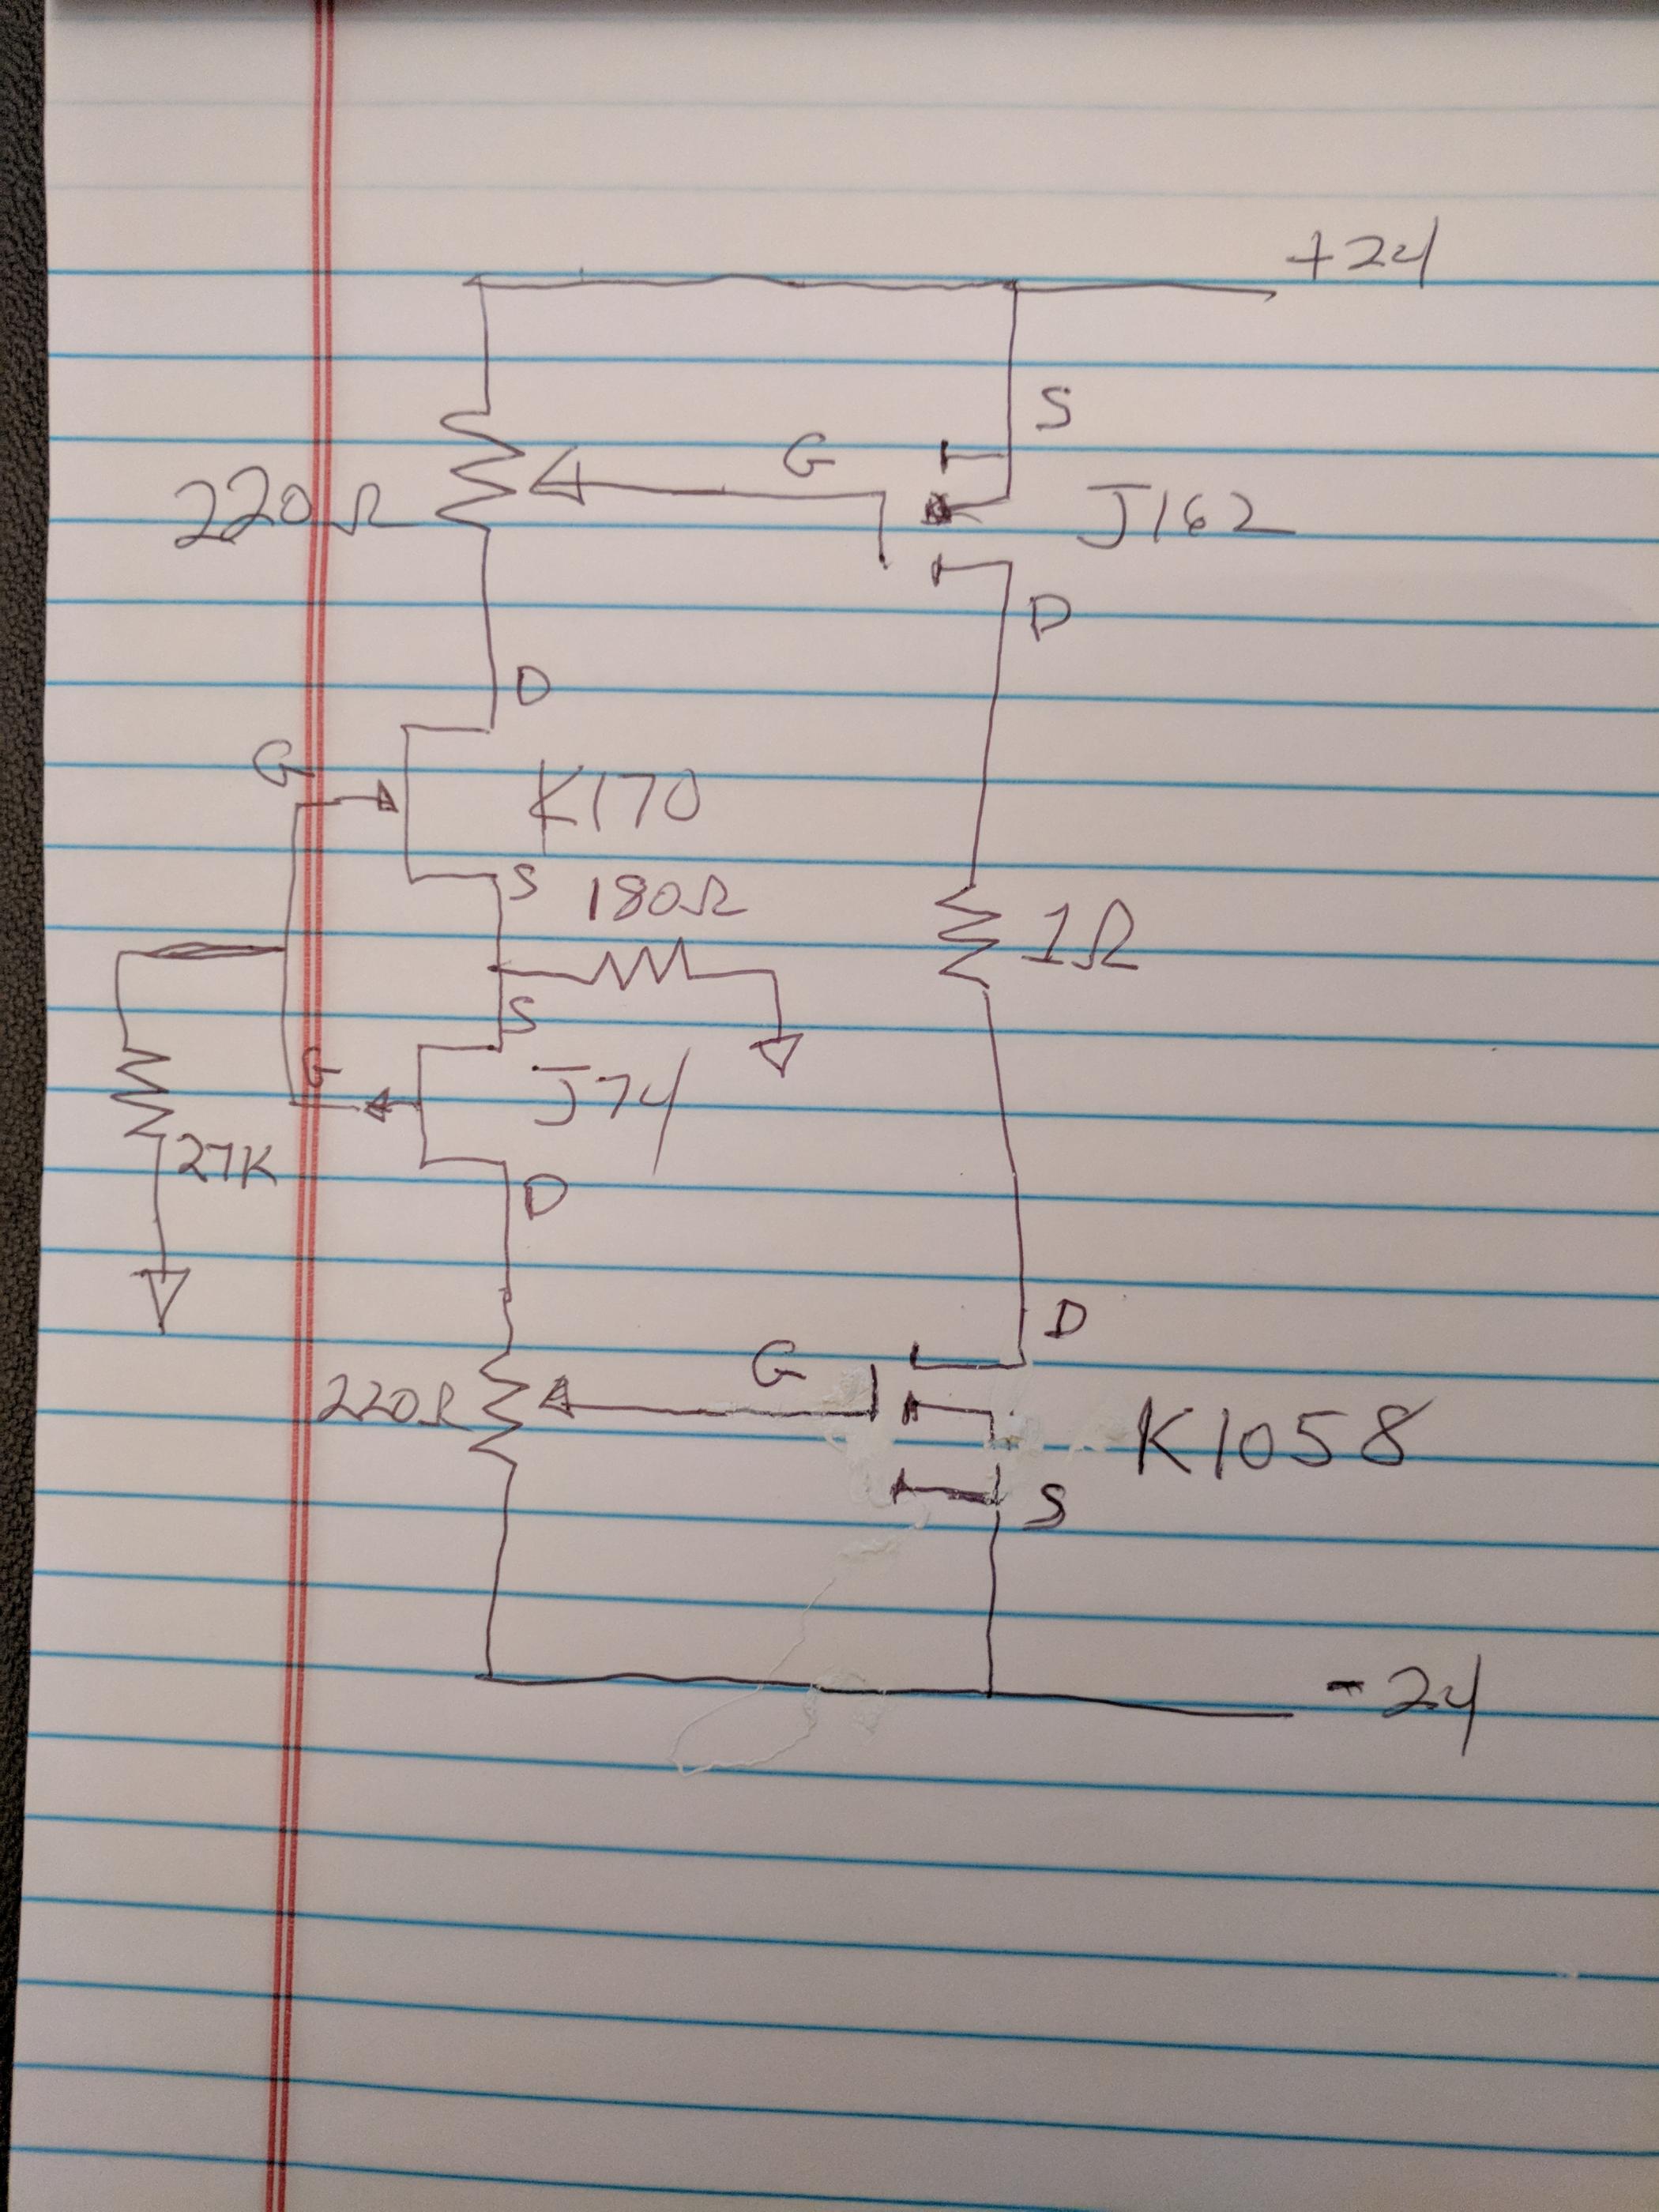 +24
S
G
220Ω
J162
D
D
G
K170
S
180Ω
1Ω
S
G
J74
27K
D
D
G
220Ω
K1058
S
-24